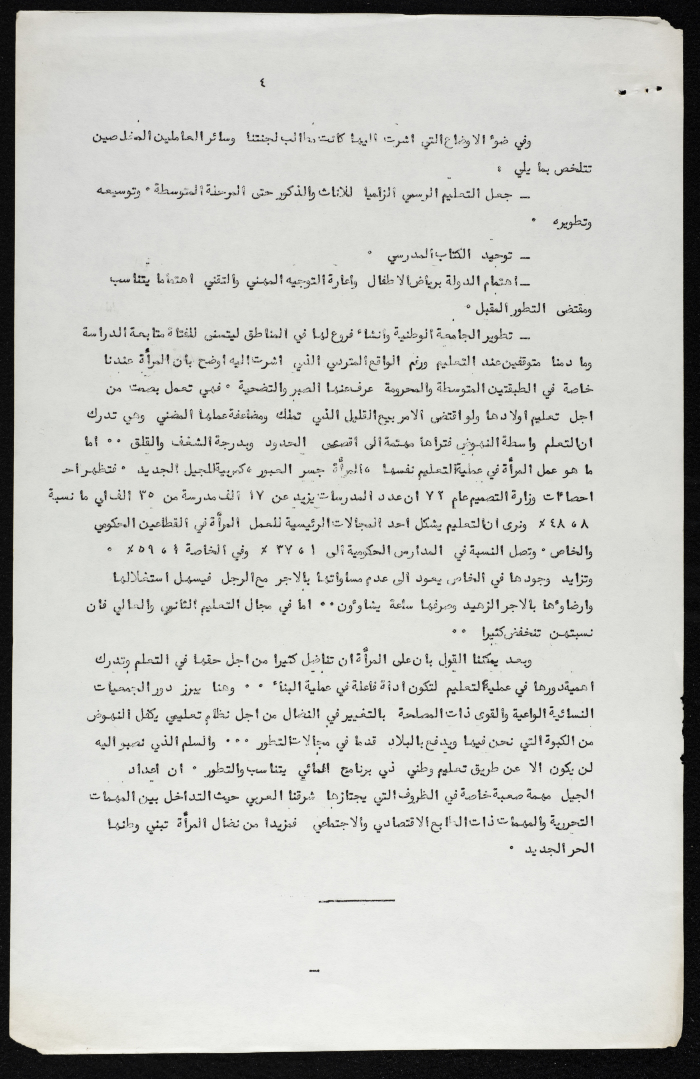 ٤
وفي ضوء الاوضاع التي اشرت اليها كانت مطالب لجنتنا وسائر العاملين المخلصين
تتلخص بما يلي :
ـ جعل التعليم الرسمي الزاميا للاناث والذكور حتى المرحلة المتوسطة ٠ وتوسيعه
وتطويره ٠
ـ توحيد الكتاب المدرسي ٠
ـ اهتمام الدولة برياض الاطفال واعارة التوجيه المهني والتقني اهتماما يتناسب
ومقتضى التطور المقبل ٠
ـ تطوير الجامعة الوطنية وانشاء فروع لها في المناطق ليتسنى للفتاة متابعة الدراسة
وما دمنا متوقفين عند التعليم ورغم الواقع المتردي الذي اشرت اليه اوضح بأن المرأة عندنا
خاصة في الطبقتين المتوسطة والمحرومة عرف عنها الصبر والتضحية ٠ فهي تعمل بصمت من
اجل تعليم اولادها ولو اقتضى الامر بيع القليل الذي تملك ومضاعفة عملها المضني وهي تدرك
ان التعلم واسطة النهوض فتراها مهتمة الى اقصى الحدود وبدرجة الشغف والقلق ٠٠ اما
ما هو عمل المرأة في عملية التعليم نفسها ، المرأة جسر العبور ، كمربية للجيل الجديد ٠ فتظهر احد
احصاءات وزارة التصميم عام ٧٢ ان عدد المدرسات يزيد عن ١٧ الف مدرسة من ٣٥ الف اي ما نسبة
٨ ، ٤٨ ٪ ونرى ان التعليم يشكل احد المجالات الرئيسية للعمل المرأة في القطاعين الحكومي
والخاص ٠ وتصل النسبة في المدارس الحكومية الى ١ ، ٣٧ ٪ وفي الخاصة ٤ ، ٥٩ ٪ ٠
وتزايد وجودها في الخاص يعود الى عدم مساواتها بالاجر مع الرجل فيسهل استغلالها
وارضاؤها بالاجر الزهيد وصرفها ساعة يشاؤون ٠٠ اما في مجال التعليم الثانوي والعالي فان
نسبتهن تنخفض كثيرا ٠٠
وبعد يمكننا القول بأن على المرأة ان تناضل كثيرا من اجل حقها في التعلم وتدرك
اهمية دورها في عملية التعليم لتكون اداة فاعلة في عملية البناء ٠٠ وهنا يبرز دور الجمعيات
النسائية الواعية والقوى ذات المصلحة بالتغيير في النضال من اجل نظام تعليمي يكفل النهوض
من الكبوة التي نحن فيها ويدفع بالبلاد قدما في مجالات التطور ٠٠٠ والسلم الذي نصبو اليه
لن يكون الا عن طريق تعليم وطني ذي برنامج انمائي يتناسب والتطور ٠ ان اعداد
الجيل مهمة صعبة خاصة في الظروف التي يجتازها شرقنا العربي حيث التداخل بين المهمات
التحررية والمهمات ذات الطابع الاقتصادي والاجتماعي فمزيدا من نضال المرأة تبني وطنها
الحر الجديد ٠